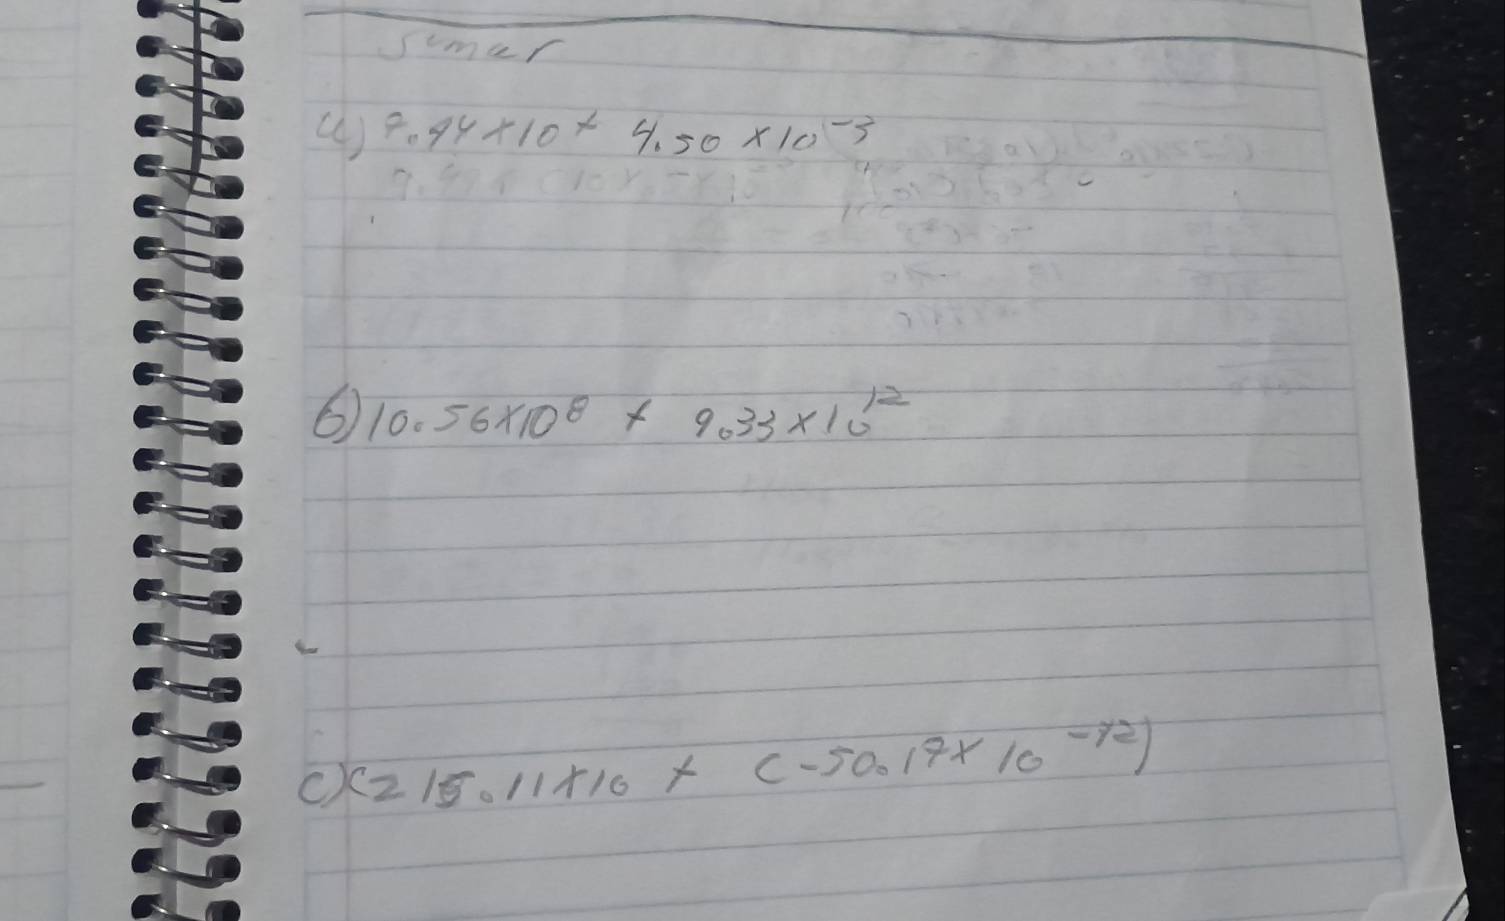 Sumar
a) 7.94 x 10 + 4.50 x 10⁻³
b) 10.56 x 10⁸ + 9.33 x 10¹²
c) (215.11 x 10 + (-50.17 x 10⁻¹²)